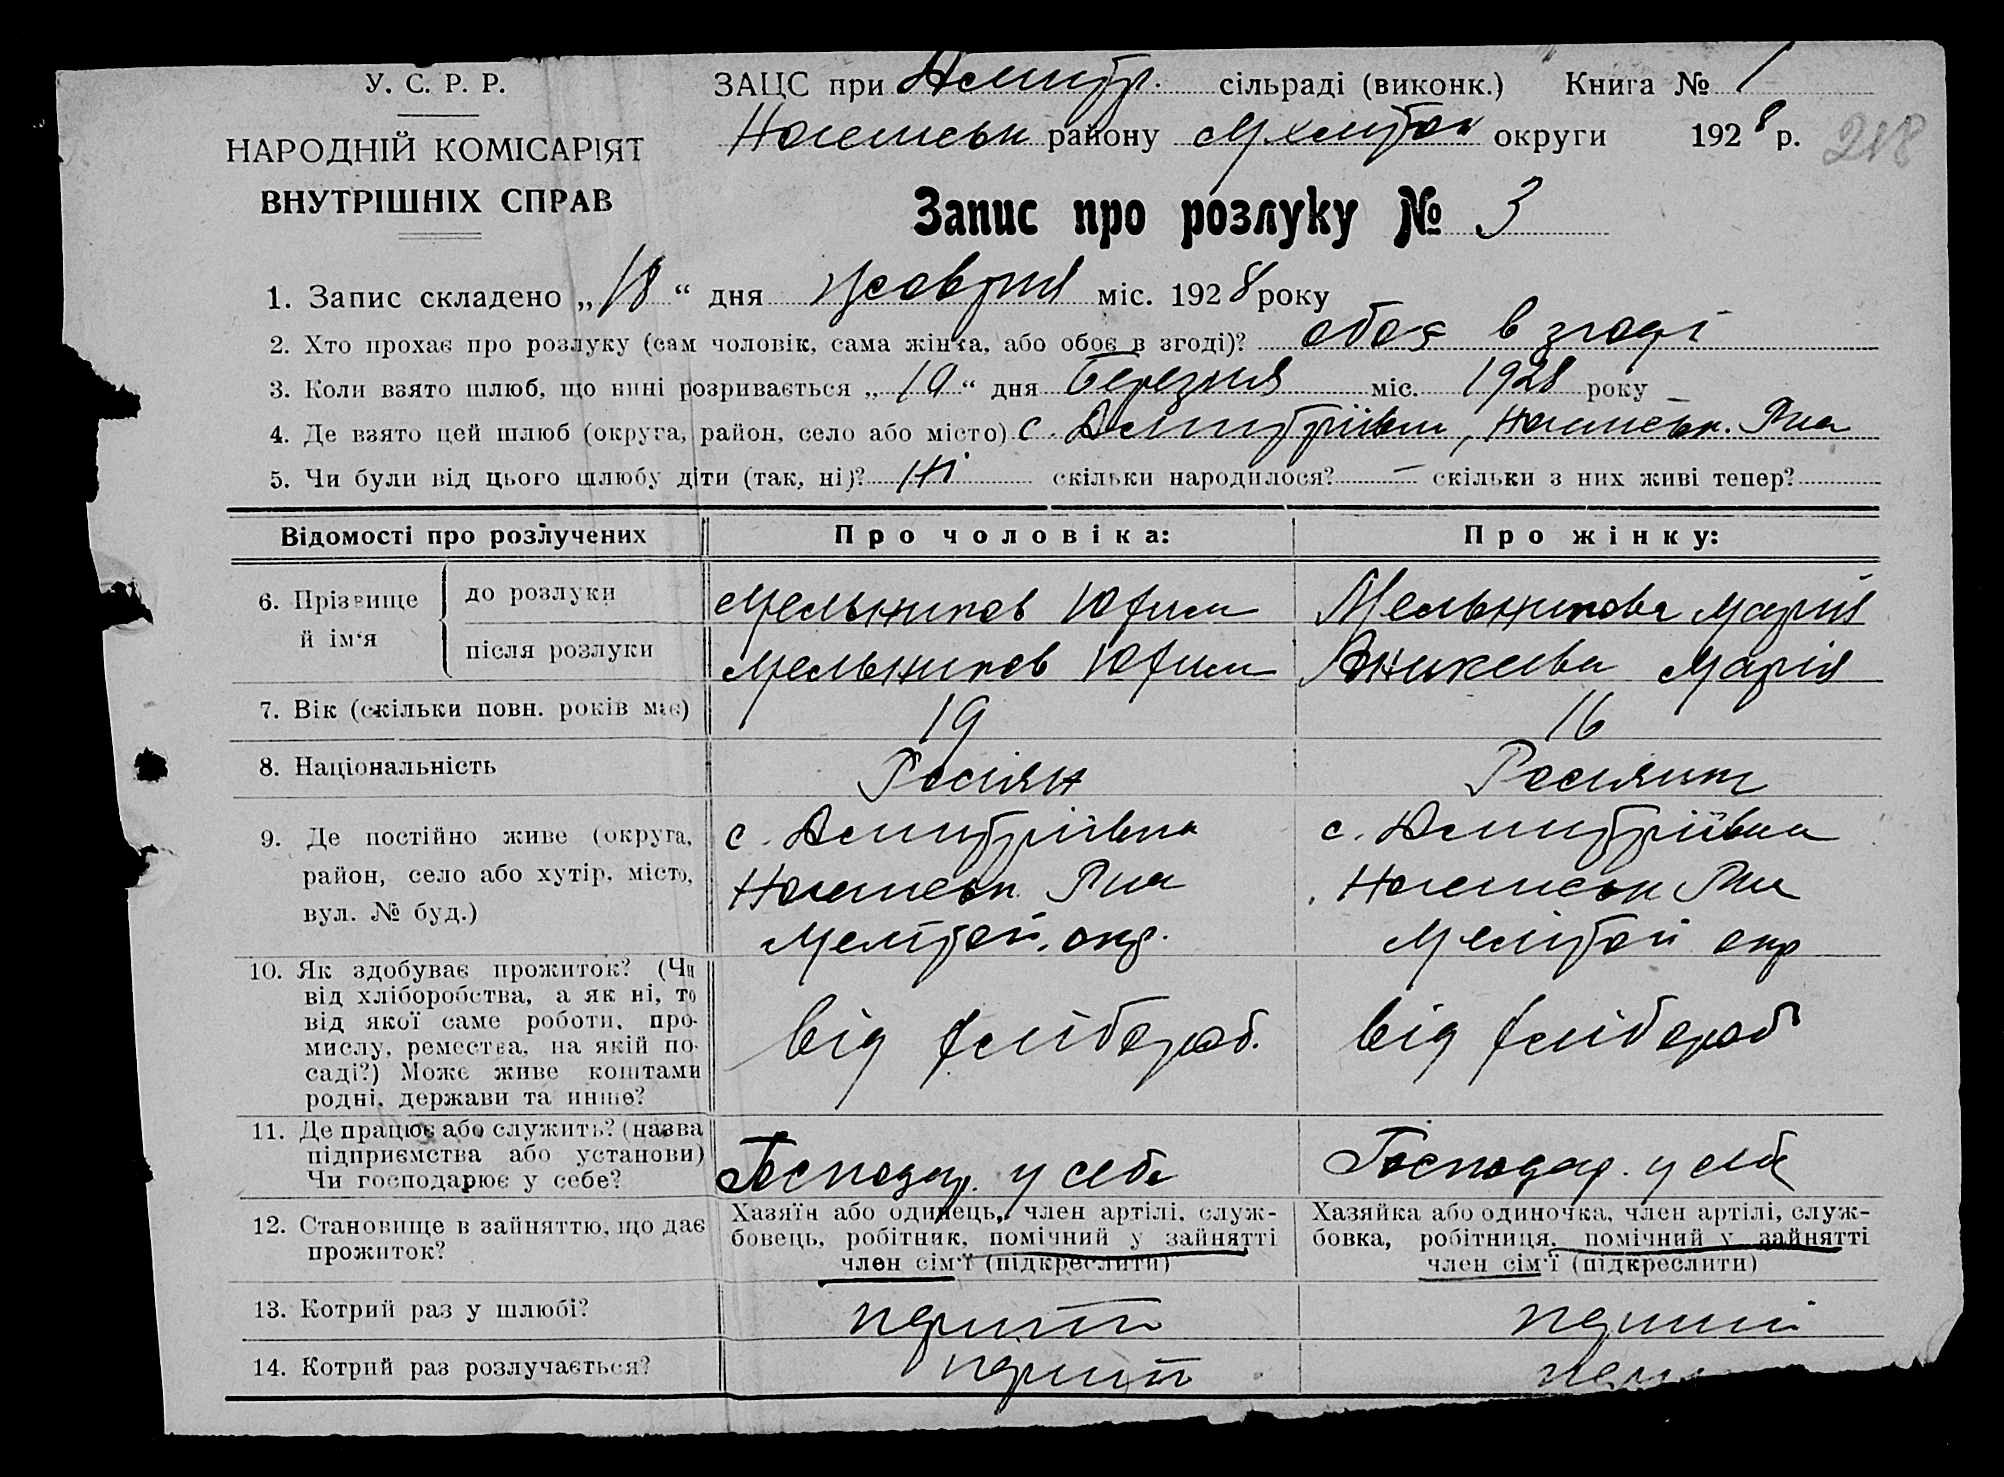 У. С. Р. Р.
НАРОДНІЙ КОМІСАРІЯТ
ВНУТРІШНІХ СПРАВ
ЗАЦС при Дмитр. сільраді (виконк.) Книга № 1
району округи 1928 р. 218
Запис про розлуку № 3
1. Запис складено „18“ дня жовтня міс. 1928 року
2. Хто прохає про розлуку (сам чоловік, сама жінка, або обоє в згоді)? обоє в згоді
3. Коли взято шлюб, що нині розривається „19“ дня Березня міс. 1928 року
4. Де взято цей шлюб (округа, район, село або місто) с. Дмитріївка,
5. Чи були від цього шлюбу діти (так, ні)? Ні скільки народилося? — скільки з них живі тепер?
Відомості про розлучених Про чоловіка: Про жінку:
6. Прізвище й ім‘я
до розлуки Мельников Юхим Мельникова Марія
після розлуки Мельников Юхим Аникеева Марія
7. Вік (скільки повн. років має) 19 16
8. Національність Росіян Росіянк
9. Де постійно живе (округа, район, село або хутір, місто, вул. № буд.)
с. Дмитріївка
Мелітоп. окр.
с. Дмитріївка
Мелітоп окр
10. Як здобуває прожиток? (Чи
від хліборобства, а як ні, то
від якої саме роботи, про-
мислу, ремества, на якій по-
саді?) Може живе коштами
родні, держави та инше?
від хлібороб. від хлібороб
11. Де працює або служить? (назва
підприємства або установи)
Чи господарює у себе?
Господар. у себе Господар. у себе
12. Становище в зайняттю, що дає
прожиток?
Хазяїн або одинець, член артілі, служ-
бовець, робітник, помічний у зайнятті
член сім‘ї (підкреслити)
Хазяйка або одиночка, член артілі, служ-
бовка, робітниця, помічний у зайнятті
член сім‘ї (підкреслити)
13. Котрий раз у шлюбі? перший перший
14. Котрий раз розлучається? перший